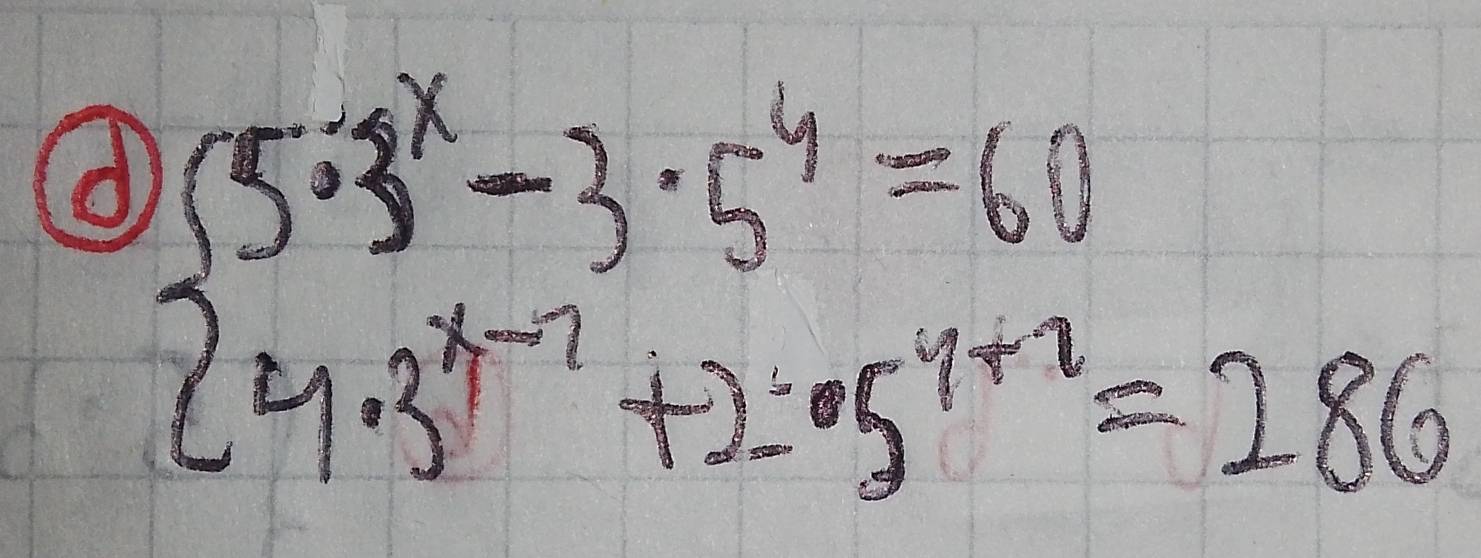 d) {5·3^x − 3·5^y = 60
{4·3^(x−1) + 2·5^(y+1) = 286